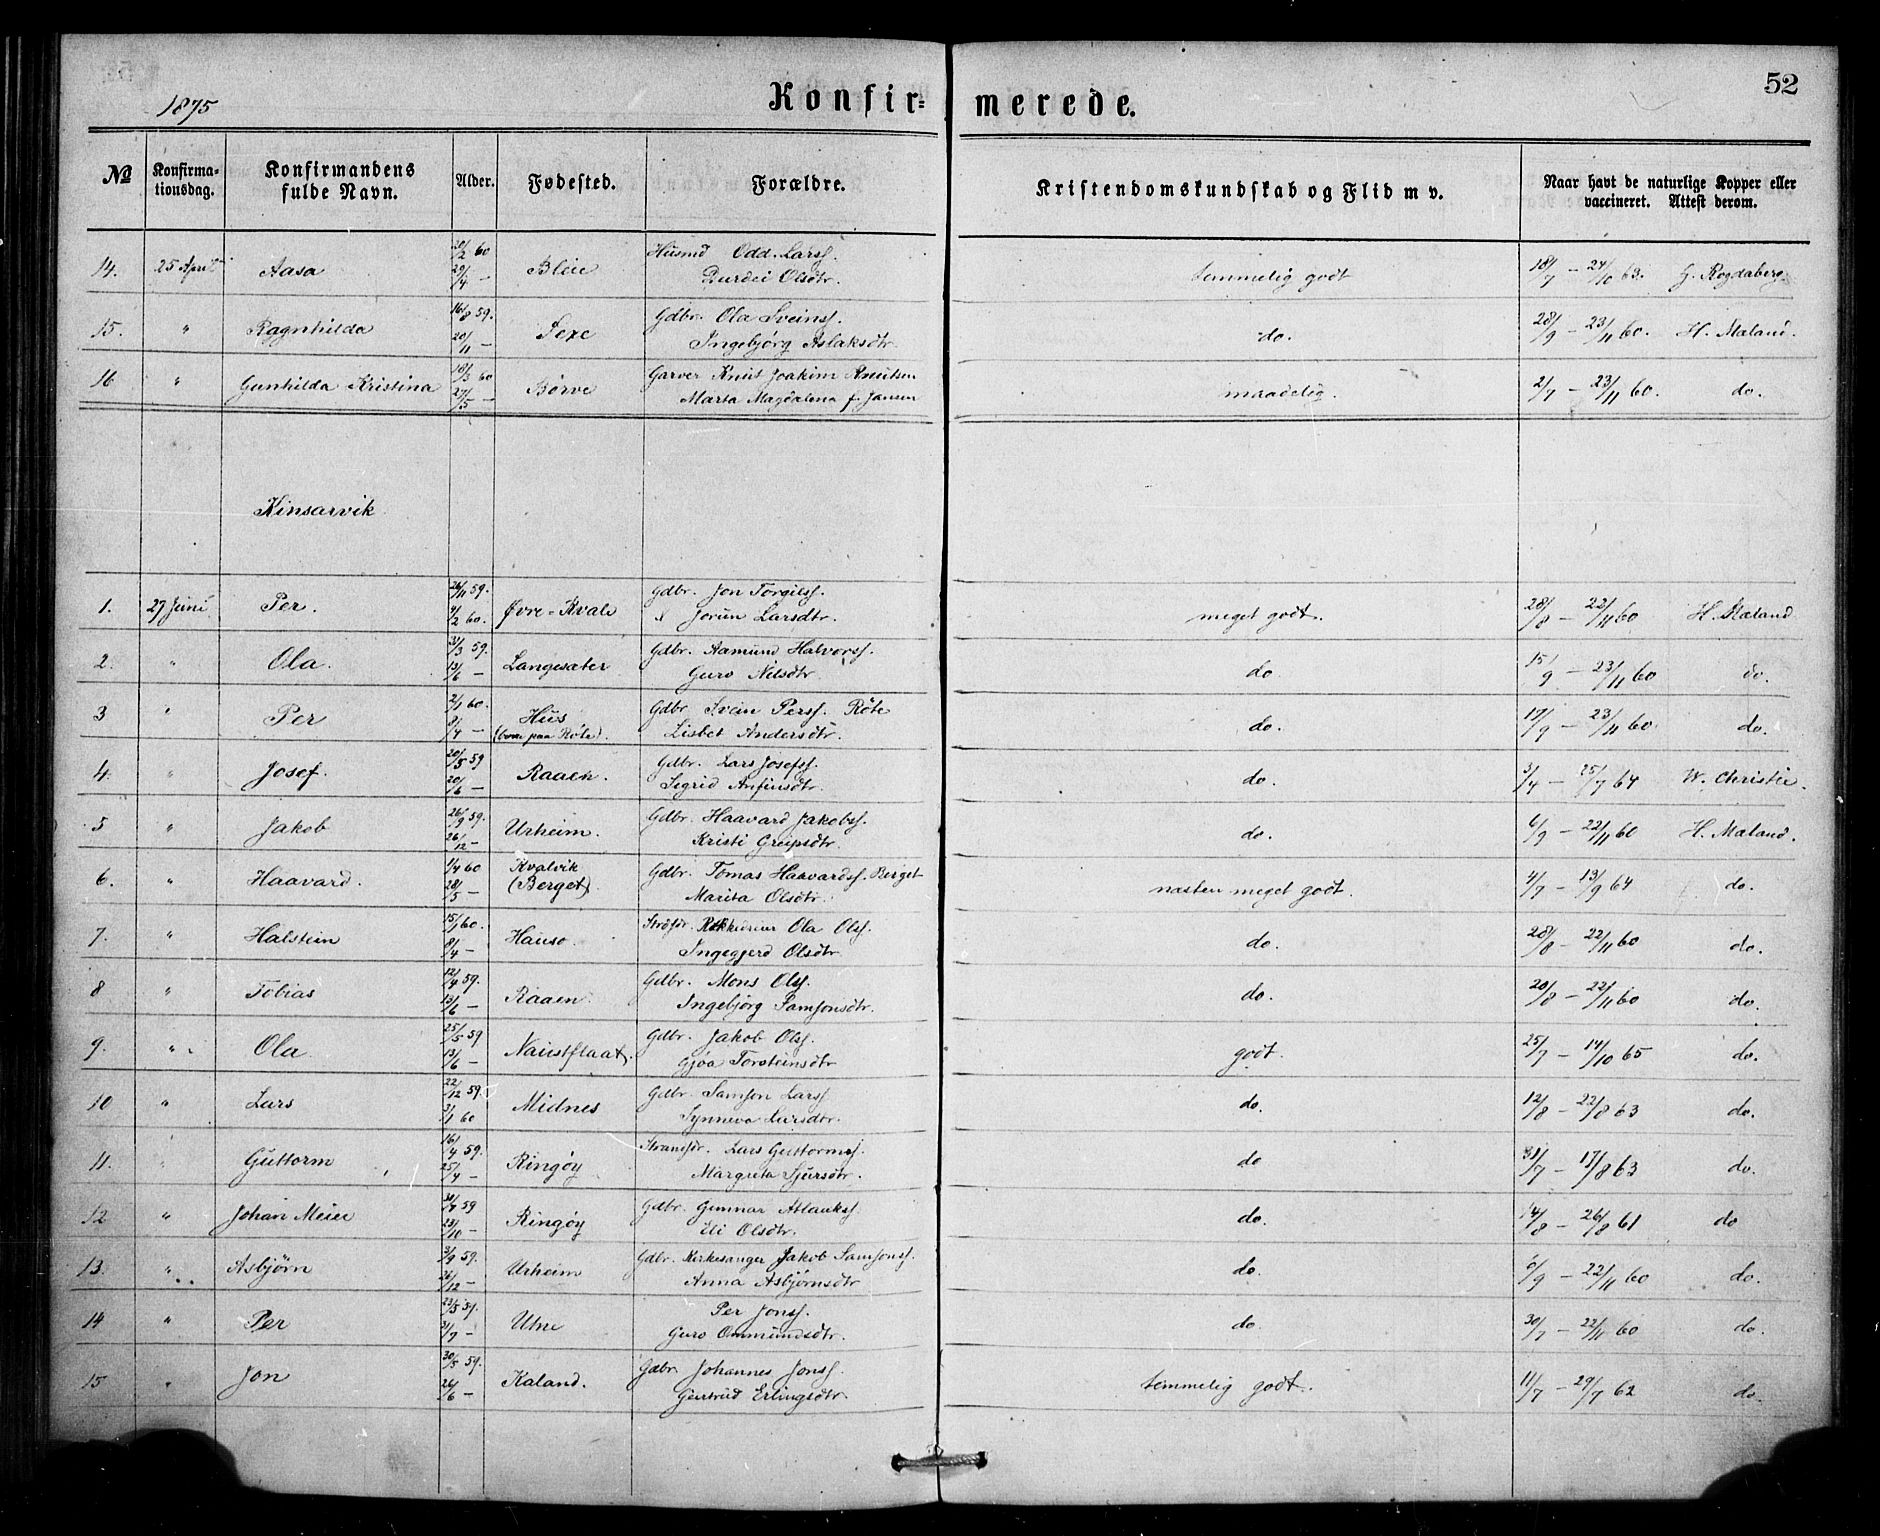 1875
Konfir= merede. 52
No Konfirma-tionsdag. Konfirmandens fulde Navn. Alder. Fødested. Forældre. Kristendomskundskab og Flid m v. Naar havt de naturlige Kopper eller vaccineret. Attest derom.
14. 25 April Aasa 20/2 60 29/4 — Bleie Husmd Odd Larsf. Durdei Olsdtr. temmelig godt 18/7 — 24/10 63. G. Rogdaberg
15. " Ragnhilda 16/8 59. 20/11 — Sexe Gdbr. Ola Sveinsf. Ingebjörg Aslaksdtr. do. 28/9 — 23/11 60. H. Mæland.
16 " Gunhilda Kristina 18/3 60 27/5 — Börve Garver Knut Joakim Knutsen Marta Magdalena f. Jansen maadelig. 2/7 — 23/11 60. do.
Kinsarvik
1. 27 Juni Per. 26/11 59. 4/2 60. Øvre-Kvale Gdbr. Jon Torgilsf. Jorun Larsdtr. meget godt. 28/8 — 22/11 60 H. Mæland
2. " Ola. 31/3 59. 13/6 — Langesæter Gdbr. Aamund Halvorsf. Guro Nilsdtr. do 15/9 — 23/11 60 do.
3 " Per 2/1 60. 8/4 — Hus (bor paa Røte). Gdbr. Svein Persf. Røte Lisbet Andersdtr. do. 17/9 — 23/11 60. do.
4. " Josef. 20/5 59 20/6 — Raaen. Gdbr. Lars Josefsf. Sigrid Arfinsdtr. do. 3/4 — 25/7 64 W. Christie.
5 " Jakob 26/9 59. 26/12 — Urheim. Gdbr. Haavard Jakobsf. Kristi Greipsdtr. do. 6/9 — 22/11 60 H. Mæland.
6. " Haavard. 1/4 60 28/5 — Kvalvik (Berget). Gdbr. Tomas Haavardsf. Berget Marita Olsdtr. næsten meget godt. 4/7 — 13/9 64 do.
7. " Halstein 15/1 60. 8/4 — Hauso. Ola Olsf. Ingegjerd Olsdtr do. 28/8 — 22/11 60 do.
8 " Tobias 12/4 59. 13/6 — Raaen. Gdbr. Mons Olsf. Ingebjörg Samsonsdtr. do. 20/8 — 22/11 60 do.
9. " Ola 25/5 59 13/6 — Naustflaat. Gdbr. Jakob Olsf. Gjøa Torsteinsdtr godt. 25/7 — 14/10 65 do.
10 " Lars 22/12 59. 3/1 60 Midnes Gdbr. Samson Larsf Synneva Larsdtr. do. 12/8 — 22/8 63 do.
11. " Guttorm 16/1 59. 25/4 — Ringöy Strandsr. Lars Guttormsf. Margreta Sjursdtr. do 31/7 — 17/8 63 do.
12 " Johan Meier 30/7 59 23/10 — Ringöy Gdbr. Gunnar Atlauksf. Eli Olsdtr. do. 14/8 — 26/8 61 do
13. " Asbjörn 3/9 59. 26/12 — Urheim Gdbr. Kirkesanger Jakob Samsonsf. Anna Asbjörnsdtr do. 6/9 — 22/11 60 do.
14 " Per 23/5 59. 21/9 — Utne Per Jonsf. Guro Ommundsdtr. do. 30/7 — 22/11 60 do.
15 " Jon 30/5 59. 26/6 — Kaland. Gdbr. Johannes Jonsf. Gurtrud Erlingsdtr. temmelig godt. 11/7 — 29/7 62 do.